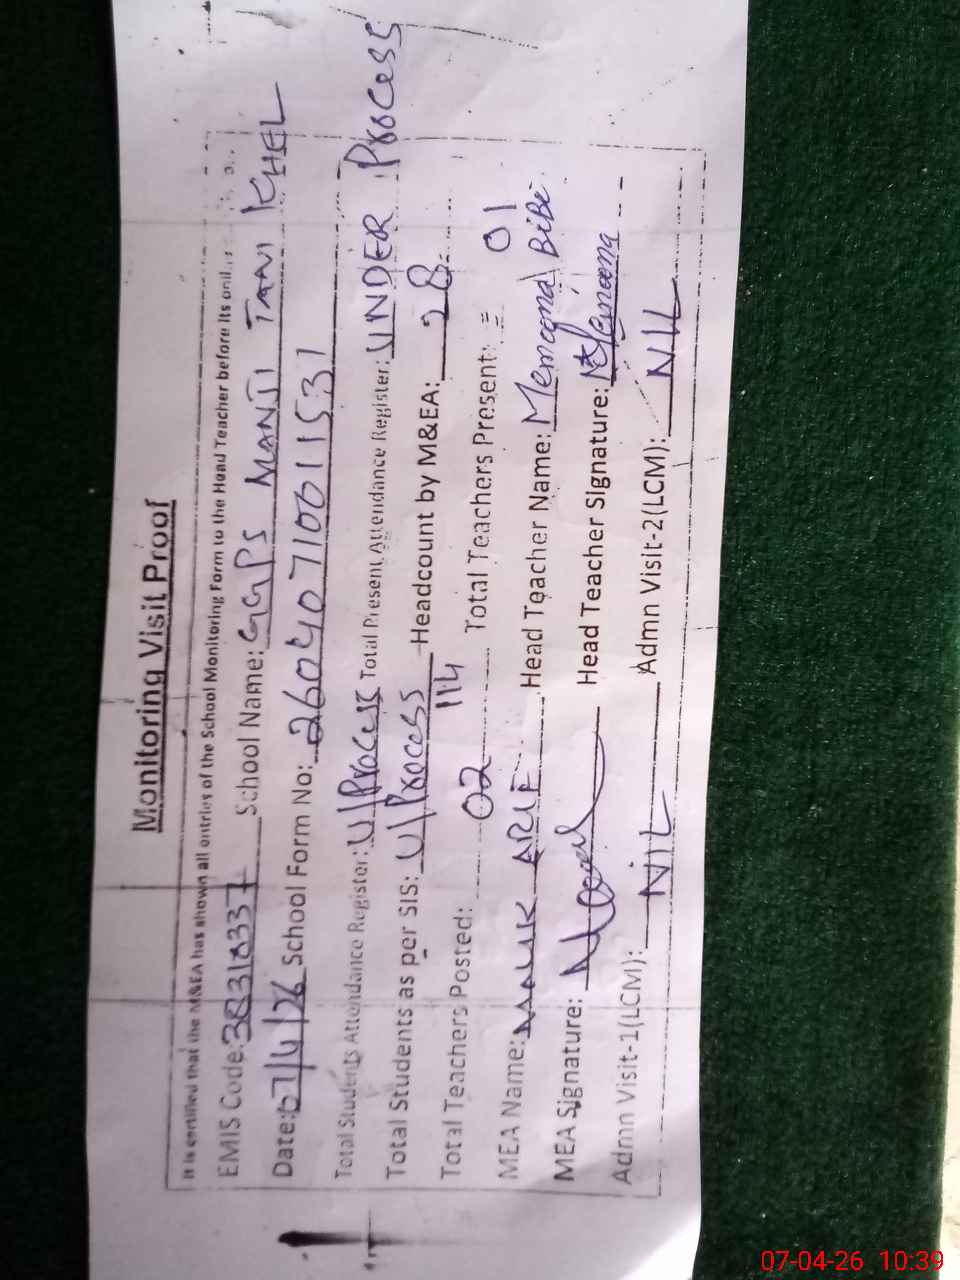 Monitoring Visit Proof
It is certified that the M&EA has shown all entries of the School Monitoring Form to the Head Teacher before its
EMIS Code: 38231837 School Name: GGPS MANJI TANI KHEL
Date: 07/4/26 School Form No: 26040710011531
Total Students Attendance Register: U/Process Total Present Attendance Register: UNDER Process
Total Students as per SIS: U/Process Headcount by M&EA: 28
114
Total Teachers Posted: 02 Total Teachers Present: 01
MEA Name: MALIK ARIF Head Teacher Name: Memoona BiBi
MEA Signature: Head Teacher Signature:
Admn Visit-1(LCM): NIL Admn Visit-2(LCM): NIL
07-04-26 10:39